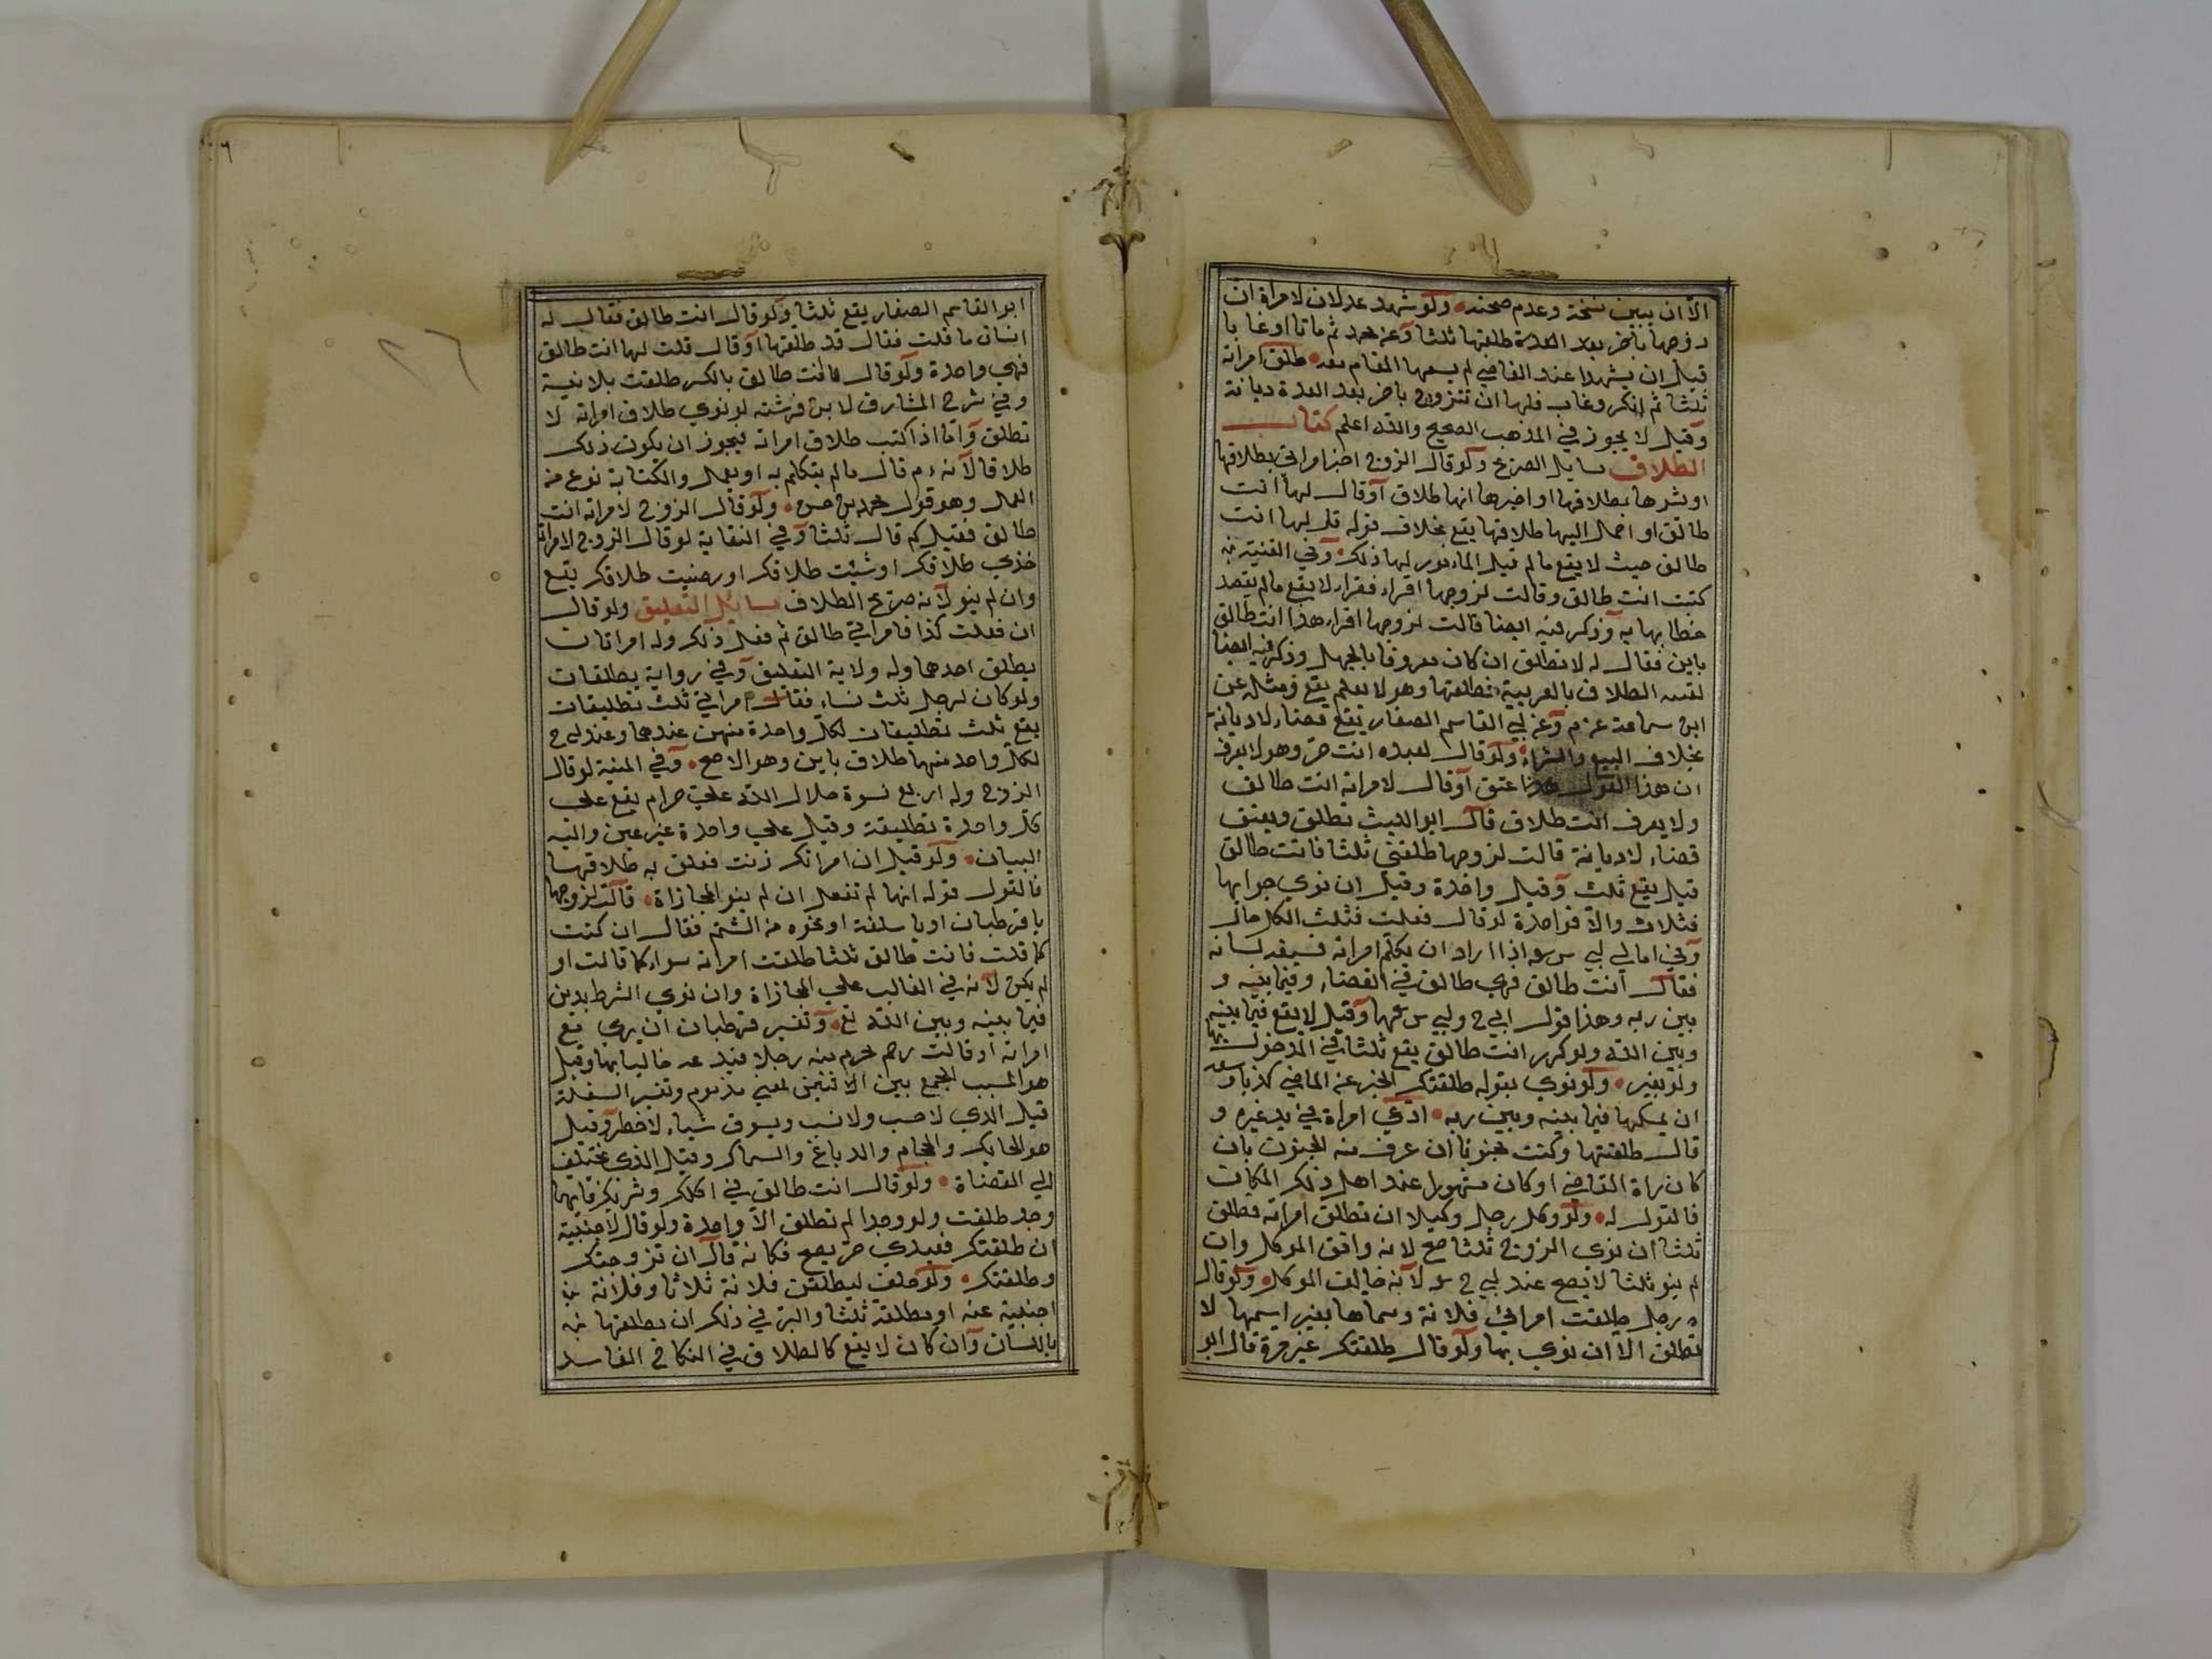 الا ان يبين نسخة وعدم صحته ولو شهد عدلان لامراة ان
زوجها طلقها ثلثا وعن محمد ثم ماتا او غابا
قبل ان يشهدا عند القاضي لم يسعها المقام معه طلق امراته
ثلثا ثم انكر وغاب فلها ان تتزوج باخر بعد العدة ديانة
وقيل لا يجوز في المذهب الصحيح والله اعلم كتاب
الطلاق مسايل الصريح ولو قال الزوج اخبر امراتي بطلاقها
او بشرها بطلاقها او اخبرها انها طلاق او قال لها انت
طالق او احمل اليها طلاقها يقع بخلاف قوله قل لها انت
طالق حيث لا يقع ما لم يقل المامور لها ذلك وفي القنية من
كتبت انت طالق وقالت لزوجها اقراء فقراء لا يقع ما لم يقصد
خطابها به وذكر فيه ايضا قالت لزوجها اقراء هذا انت طالق
باين فقال له لا تطلق ان كان معروفا بالجهل وذكر فيه ايضا
لقنه الطلاق بالعربية فطلقها وهو لا يعلم يقع ومثله عن
ابن سماعة عن م وعن ابي القاسم الصفار يقع قضاء لا ديانة
بخلاف البيع والشراء ولو قال لعبده انت حر وهو لا يعرف
ان هذا القول عتق او قال لامراته انت طالق
ولا يعرف انت طلاق قال ابو الليث تطلق ويعتق
قضاء لا ديانة قالت لزوجها طلقني ثلثا فانت طالق
قيل يقع ثلث وقيل واحدة وقيل ان نوي جوابها
فثلاث والا فواحدة لو قال فعلت فثلث الكل حال
وفي امالي ابي س اذا اراد ان يكلم امراته فسبقه لسانه
فقال انت طالق فهي طالق في القضاء وفيما بينه و
بين ربه وهذا قول ابي ح وابي س وقيل لا يقع فيما بينه
وبين الله ولو كرر انت طالق يقع ثلثا في المدخول بها
ولو بغير ولو نوي بقوله طلقتك الخبر عن الماضي كذبا وسعه
ان يمسكها فيما بينه وبين ربه ادعي امراة في يد غيره و
قال طلقتها وكنت مجنونا ان عرف منه الجنون بان
كان راه القاضي او كان مشهورا عند اهل ذلك المكان
فالقول له ولو وكل رجل وكيلا ان تطلق امراته فطلق
ثلثا ان نوي الزوج ثلثا صح لانه وافق الموكل وان
لم ينو ثلثا لا يصح عند ابي ح لانه خالف الموكل ولو قال
رجل طلقت امراتي فلانة وسماها بغير اسمها لا
تطلق الا ان نوي بها ولو قال طلقتك غير مرة قال ابو
ابو القاسم الصفار يقع ثلثا ولو قال انت طالق فقال له
انسان ما قلت فقال قد طلقتها او قال قلت لها انت طالق
فهي واحدة ولو قال انت طالق بالكسر طلقت بلا نية
وفي شرح المشارق لابن فرشته لو نوي طلاق امراته لا
تطلق واما اذا كتب طلاق امراته فيجوز ان يكون ذلك
طلاقا لانه م قال ما لم يتكلم به او يعمل والكتابة نوع من
العمل وهو قول محمد بن حسن ولو قال الزوج لامراته انت
طالق فقيل كم قال ثلثا وفي النقاية لو قال الزوج لامراته
خذي طلاقك او شئت طلاقك او رضيت طلاقك يقع
وان لم ينو لانه صريح الطلاق مسايل التعليق ولو قال
ان فعلت كذا فامراتي طالق ثم فعل ذلك وله امراتان
يطلق احدهما وله ولاية التعليق وفي رواية يطلقان
ولو كان لرجل ثلث نساء فقال امراتي ثلث تطليقات
يقع ثلث تطليقات لكل واحدة منهن عندهما وعند ابي ح
لكل واحد منها طلاق باين وهو الاصح وفي المنية لو قال
الزوج وله اربع نسوة حلال الله علي حرام يقع علي
كل واحدة تطليقة وقيل علي واحدة غير عين واليه
البيان ولو قيل ان امراتك زنت فعلق به طلاقها
فالقول قوله انها لم تفعل ان لم ينو المجازاة قالت لزوجها
يا قرطبان او يا سلفة او نحوه من الشتم فقال ان كنت
كما قلت فانت طالق ثلثا طلقت امراته سواء كما قالت او
لم يكن لانه في الغالب علي المجازاة وان نوي الشرط يدين
فيما بينه وبين الله تع وتفسير قرطبان ان يري مع
امراته او قالت رحم محرم منه رجلا خاليا بها وقيل
هو المسبب الجمع بين الاثنين لمعني مذموم وتفسير السفلة
قيل الذي لا حسب ولا نسب ويسوق شياء لا خطر وقيل
هو الحايك والحجام والدباغ والسماك وقيل الذي يختلف
الي القضاة ولو قال انت طالق في اكلك وشربك فايهما
وجد طلقت ولو وجدا لم تطلق الا واحدة ولو قال لاجنبية
ان طلقتك فعبدي حر يصح فكانه قال ان تزوجتك
وطلقتك ولو حلف ليطلقن فلانة ثلاثا وفلانة
اجنبية عنه او مطلقة ثلثا والبر في ذلك ان يطلقها
باللسان وان كان لا يقع كالطلاق في النكاح الفاسد
٢٦